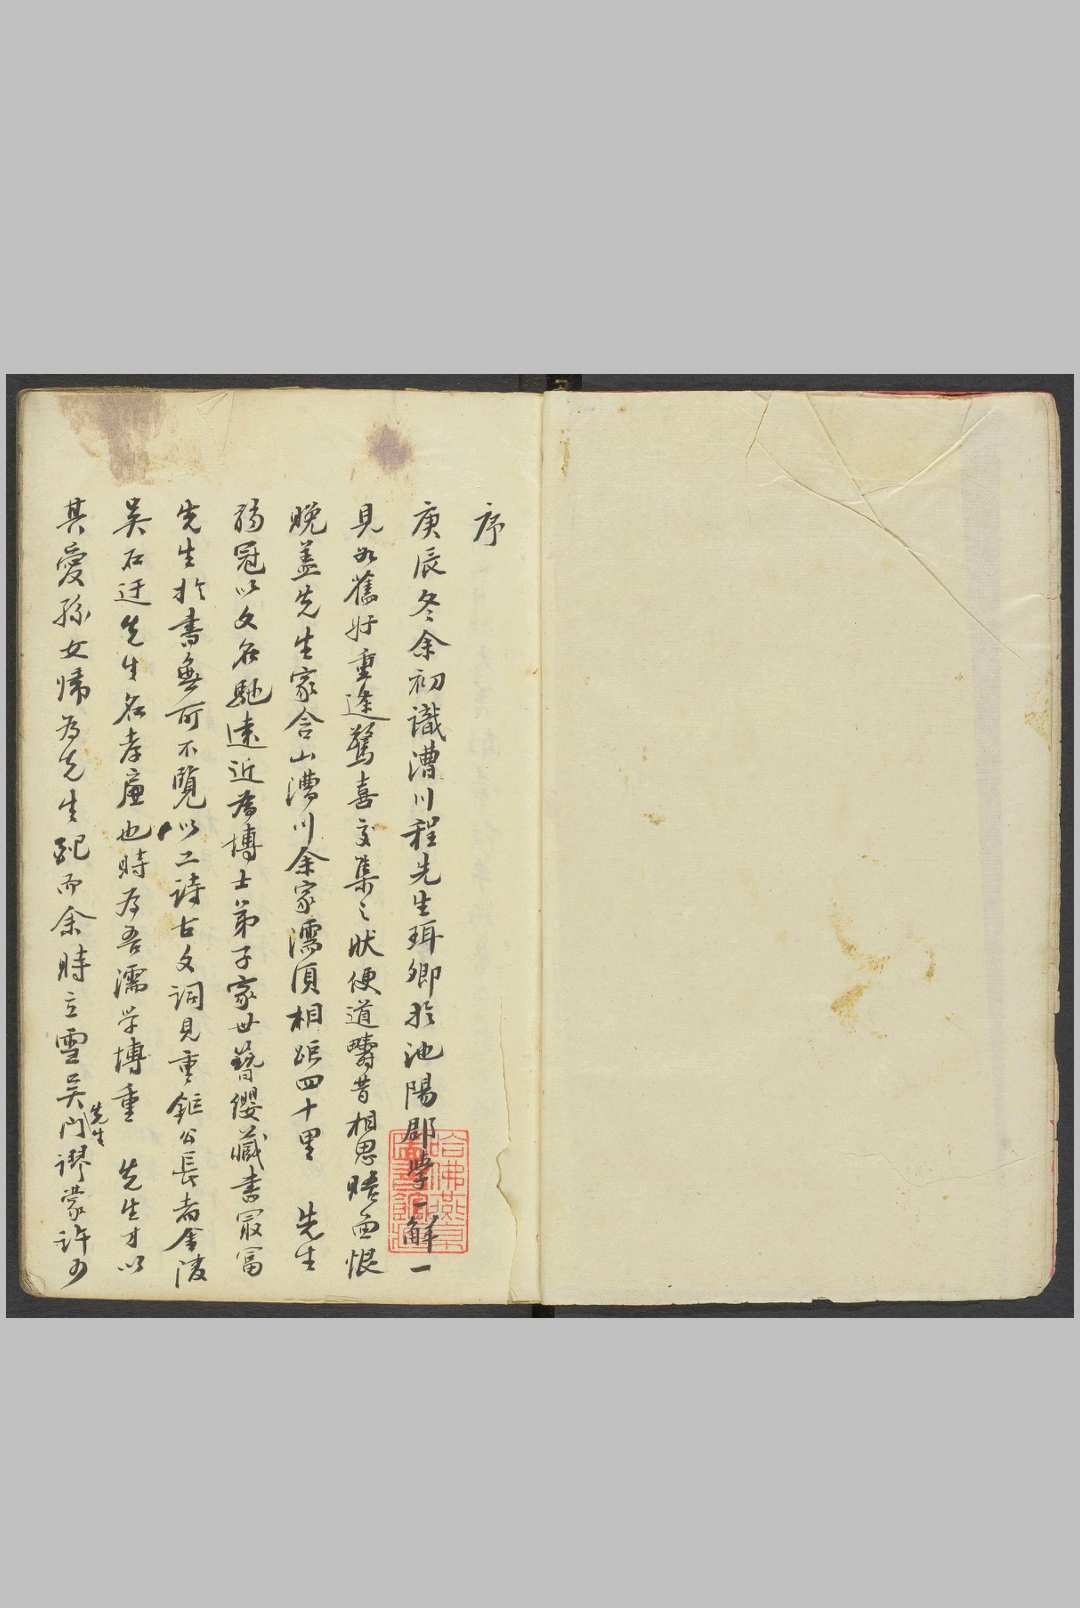 序
庚辰冬余初識漕川程先生珥卿於池陽郡學一解一
見如舊好重逢驚喜交集之狀便道疇昔相思晤面恨
晚蓋先生家含山漕川余家濡須相距四十里 先生
弱冠以文名馳遠近為博士弟子家世簪纓藏書最富
先生於書無所不覽以工詩古文詞見重鉅公長者金陵
吳石迂先生名孝廉也時為吾濡学博重 先生才以
其愛孫女帰為先生配而余時立雪吳門先生謬蒙許可
哈佛燕京圖書館